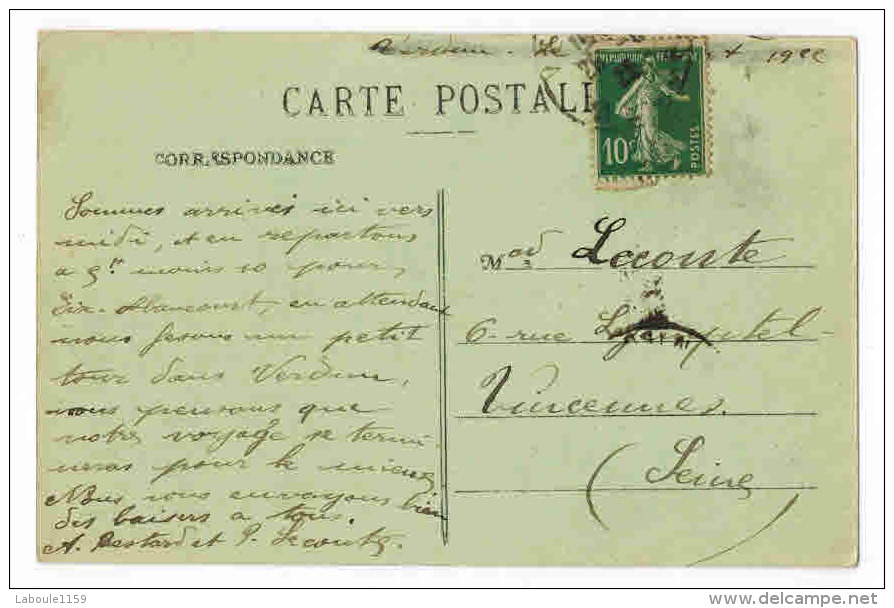 Verdun. le 1922
CARTE POSTALE
10c
POSTES
CORRESPONDANCE
Sommes arrivés ici vers
midi, et en repartons
a moins 10 pour,
Abancourt, en attendant
nous fesons un petit
tour dans Verdun,
nous pensons que
notre voyage se termi-
neras pour le mieux
Nous vous envoyons bien
des baisers a tous.
A. Bestard et P. Leconte.
Mad Leconte
6 rue
Vincennes.
(Seine)
Laboule1159
www.delcampe.net